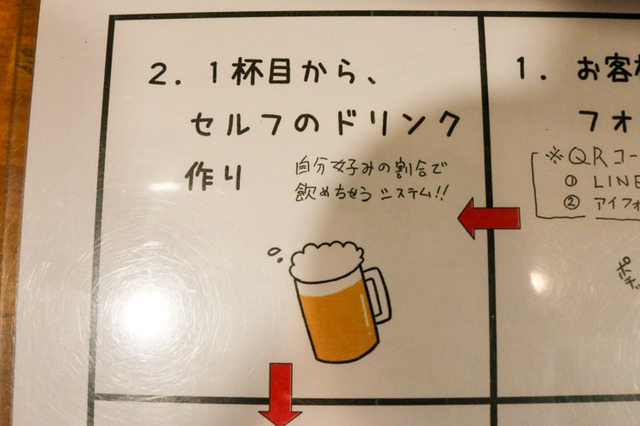 2. 1杯目から、
セルフのドリンク
作り
自分好みの割合で
飲めちゃう システム!!
1. お客
フォ
※QRコー
① LINE
② アイフォ
ポチ